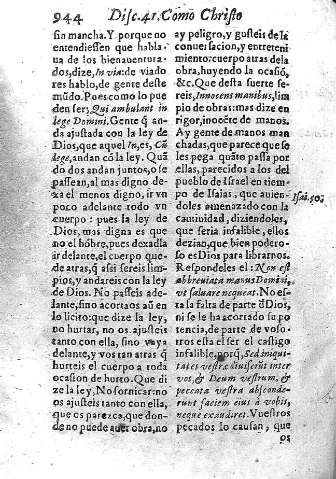 944 Disc. 41. Como Christo
sin mancha. Y porque no
entendiessen que habla-
ua de los bienauentura-
dos, dize, In via: de viado
res hablo, de gente deste
mũdo. Pues como lo pue
den ser? Qui ambulant in
lege Domini. Gente q̃ an-
da ajustada con la ley de
Dios, que aquel In, es, Cũ
lege, andan cõ la ley. Quã
do dos andan juntos, o se
passean, al mas digno de-
xa el menos digno, ir vn
poco adelante todo vn
cuerpo: pues la ley de
Dios, mas digna es que
no el hõbre, pues dexadla
ir delante, el cuerpo que-
de atras, q̃ assi sereis lim-
pios, y andareis con la ley
de Dios. No passeis ade-
lante, sino acortaos aũ en
lo licito: que dize la ley,
no hurtar, no os ajusteis
tanto con ella, sino vaya
delante, y vos tan atras q̃
hurteis el cuerpo a toda
ocasion de hurto. Que di-
ze la ley, No fornicar: no
os ajusteis tanto con ella,
que es parezca, que don-
de no puede auer obra, no
ay peligro, y gusteis de la
conuersacion, y entreteni
miento: cuerpo atras de la
obra, huyendo la ocasiõ,
&c. Que desta suerte se-
reis, Innocens manibus, lim
pio de obras: mas dize en
rigor, inocẽte de manos.
Ay gente de manos man
chadas, que parece que se
les pega quãto passa por
ellas, parecidos a los del
pueblo de Israel en tiem-
po de Isaias, que auien-
doles amenazado con la
cautiuidad, diziendoles,
que seria infalible, ellos
dezian, que bien podero-
so es Dios para librarnos.
Isai. 50.
Respondeles el: Non est
abbreuiata manus Domini,
vt saluare nequeat. No es-
ta la falta de parte d̃ Dios,
ni se le ha acortado su po
tencia, de parte de voso-
tros esta el ser el castigo
infalible, porq̃, Sed iniqui-
tates vestræ diuiserũt inter
vos, & Deum vestrum, &
peccata vestra absconde-
runt faciem eius à vobis,
neque exaudiret. Vuestros
pecados lo causan, que
os